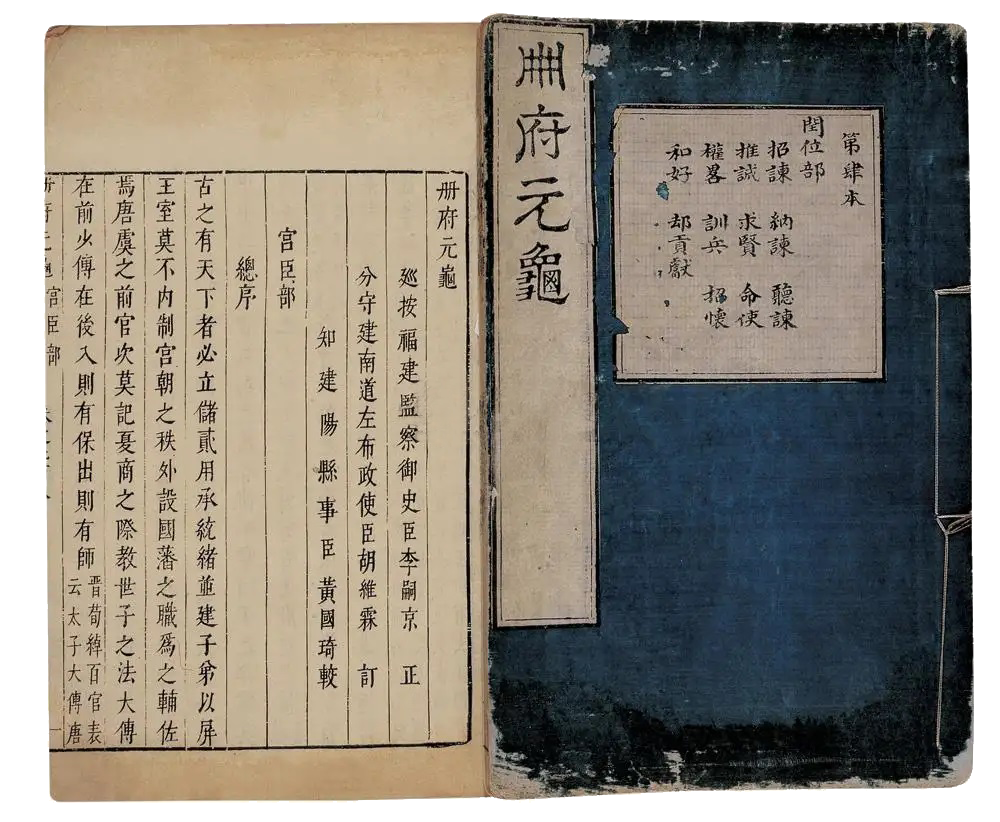 第肆本
閏位部
招諫 納諫 聽諫
推誠 求賢 命使
權畧 訓兵 招懷
和好 却貢獻
冊府元龜
册府元龜
廵按福建監察御史臣李嗣京 正
分守建南道左布政使臣胡維霖 訂
知建陽縣事臣黃國琦較
宮臣部
總序
古之有天下者必立儲貳用承統緒並建子弟以屏
王室莫不内制宮朝之秩外設國藩之職爲之輔佐
焉唐虞之前官次莫記夏商之際教世子之法大傅
在前少傅在後入則有保出則有師
晉荀綽百官表
云太子大傅唐
册府元龜 宮臣部